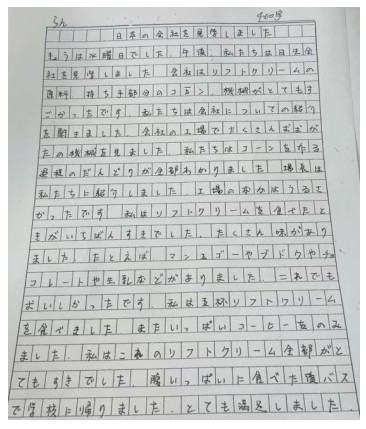 らん 400字
日本の会社を見学しました
きのうは水曜日でした。午後、私たちは日生会
社を見学しました。会社はソフトクリームの
原料、持ち手部分のコーン、機械がとてもす
ごかったです。私たちは会社についての紹介
を聞きました。会社の工場でたくさんさまざま
たの機械を見ました。私たちはコーンを作る
過程のだんどりが全部わかりました。場長は
私たちに紹介しました。工場の本かはうるさ
かったです。私はソフトクリームを食べたと
きがいちばんすきでした。たくさん味があり
ました。たとえば、マンゴーやブドウやチョ
コレートや生乳などがありました。これでも
おいしかったです。私は五杯ソフトクリーム
を食べました。またいっぱいコーヒーをのみ
ました。私はこれのソフトクリーム全部がと
てもすきでした。腹いっぱいに食べた後バス
で学校に帰りました。とても満足しました。